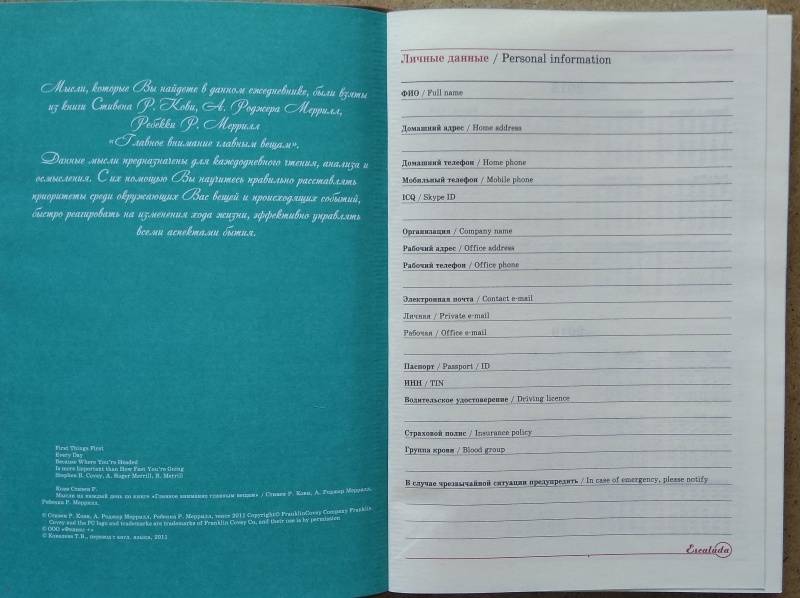 Мысли, которые Вы найдете в данном ежедневнике, были взяты
из книги Стивена Р. Кови, А. Роджера Меррилл,
Ребекки Р. Меррилл
«Главное внимание главным вещам».
Данные мысли предназначены для каждодневного чтения, анализа и
осмысления. С их помощью Вы научитесь правильно расставлять
приоритеты среди окружающих Вас вещей и происходящих событий,
быстро реагировать на изменения хода жизни, эффективно управлять
всеми аспектами бытия.
First Things First
Every Day
Because Where You're Headed
Is more Important than How Fast You're Going
Stephen R. Covey, A. Roger Merrill, R. Merrill
Кови Стивен Р.
Мысли на каждый день по книге «Главное внимание главным вещам» / Стивен Р. Кови, А. Роджер Меррилл,
Ребекка Р. Меррилл.
© Стивен Р. Кови, А. Роджер Меррилл, Ребекка Р. Меррилл, 2011 Copyright© FranklinCovey Company Franklin
Covey and the FC logo and trademarks are trademarks of Franklin Covey Co, and their use is by permission
© ООО +»
© Ковалева Т.В., перевод с англ. языка, 2011
Личные данные / Personal information
ФИО / Full name
Домашний адрес / Home address
Домашний телефон / Home phone
Мобильный телефон / Mobile phone
ICQ / Skype ID
Организация / Company name
Рабочий адрес / Office address
Рабочий телефон / Office phone
Электронная почта / Contact e-mail
Личная / Private e-mail
Рабочая / Office e-mail
Паспорт / Passport / ID
ИНН / TIN
Водительское удостоверение / Driving licence
Страховой полис / Insurance policy
Группа крови / Blood group
В случае чрезвычайной ситуации предупредить / In case of emergency, please notify
Escalada